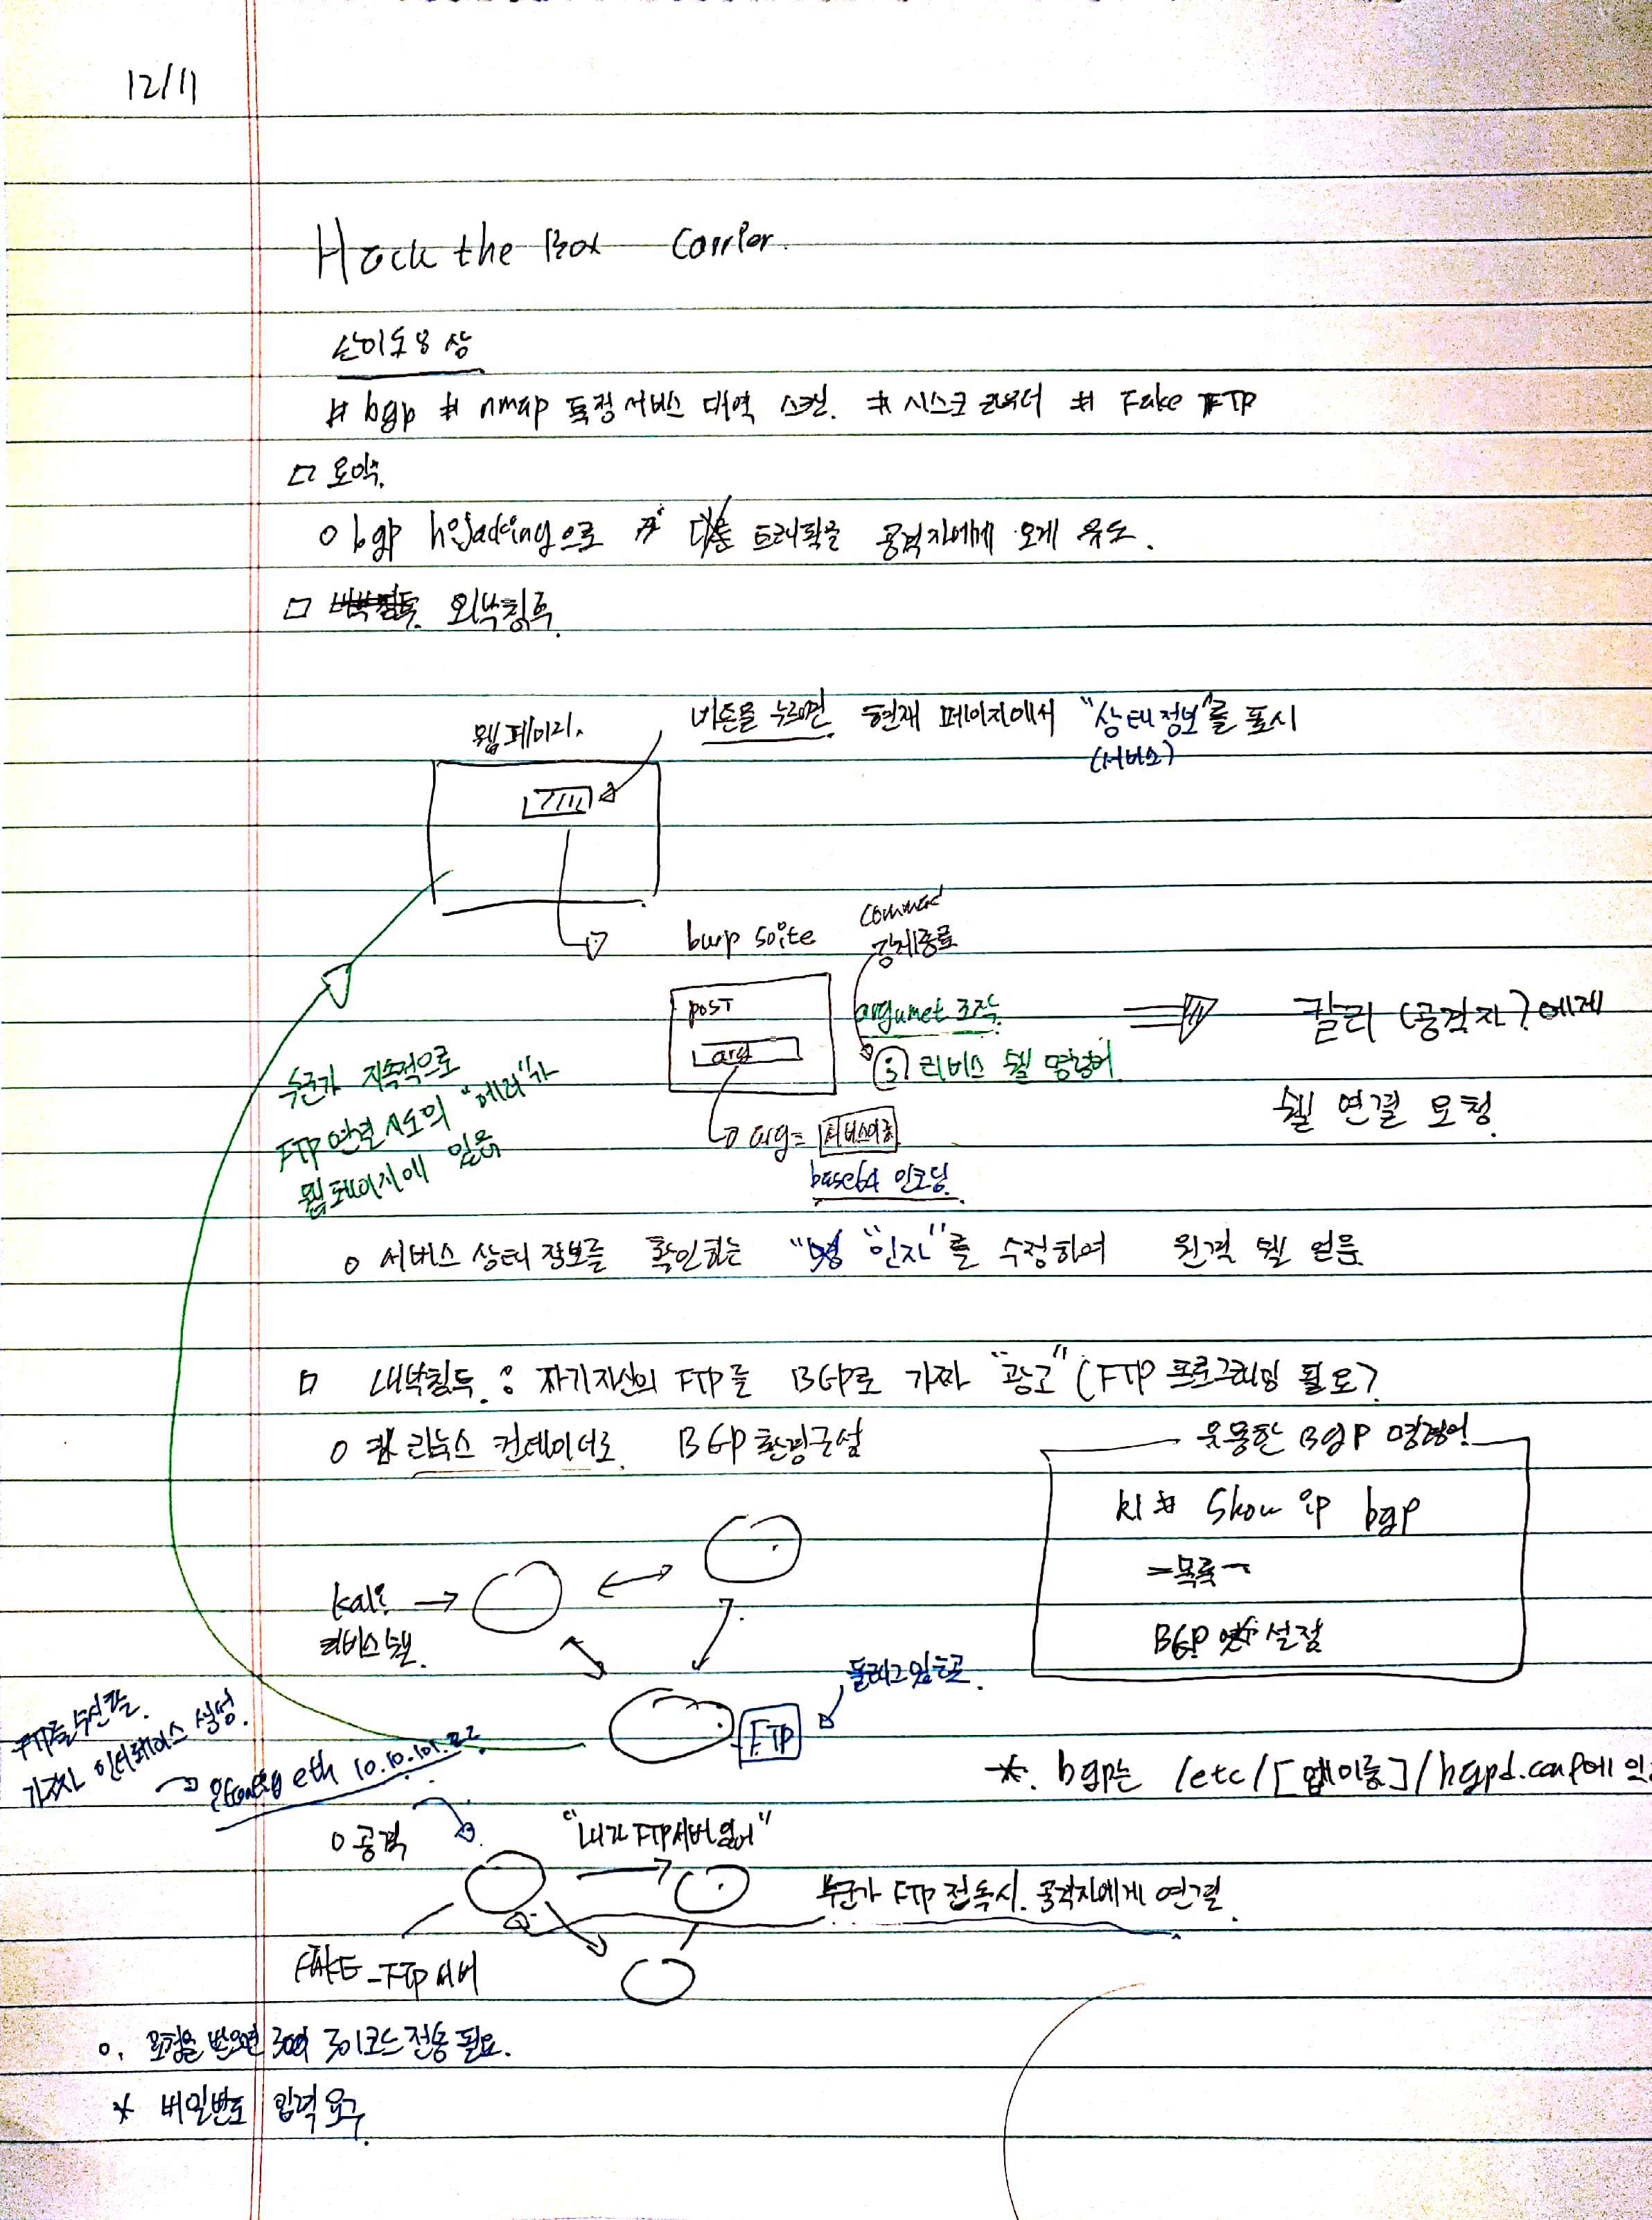 12/11
Hack the Box Carrier.
난이도 상
# bgp # nmap 특정 서비스 대역 스캔. # 시스코 라우터 # Fake FTP
□ 요약.
o bgp hijacking으로 트래픽을 공격자에게 오게 유도.
□ 외부침투.
버튼을 누르면 현재 페이지에서 "상태정보"를 표시
(서비스)
웹페이지.
command
강제종료
burp soite
post
arg
argumet 조작.
; 리버스 쉘 명령어
칼리 (공격자)에게
쉘 연결 요청.
arg= 서비스이름
base64 인코딩.
누군가 지속적으로
FTP 연결 시도의 "에러"가
웹페이지에 있음
o 서비스 상태 정보를 확인하는 "인자"를 수정하여 원격 쉘 얻음
□ 내부침투. : 자기자신의 FTP를 BGP로 가짜 "광고" (FTP 프로그래밍 필요?
o 리눅스 컨테이너로. BGP 환경구성
유용한 BgP 명령어.
k1 # Show ip bgp
-목록-
BGP 설정
kali
리버스 쉘.
플래그 있는곳.
FTP
FTP를 수신할.
가짜 인터페이스 설정.
ifconfig eth 10.10.101.22
*. bgp는 /etc/[앱이름]/bgpd.conf에
o 공격
"내가 FTP서버 있어"
누군가 FTP 접속시. 공격자에게 연결.
FAKE-FTP 서버
o. 요청을 받으면 301코드 전송 필요.
* 비밀번호 입력 요구.